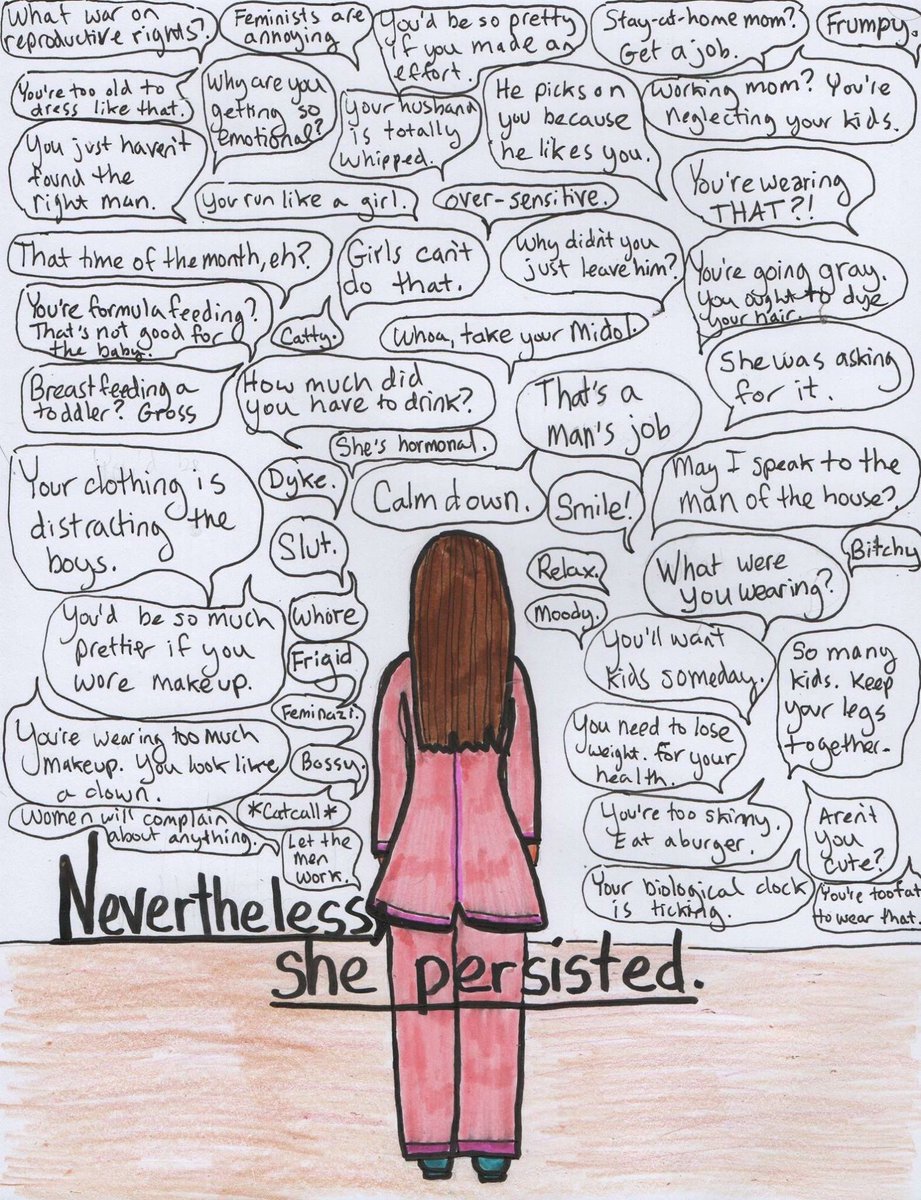 What war on
reproductive rights?
Feminists are
annoying
You'd be so pretty
if you made an
effort.
Stay-at-home mom?
Get a job.
Frumpy.
You're too old to
dress like that.
Why are you
getting so
emotional?
Your husband
is totally
whipped.
He picks on
you because
he likes you.
Working mom? You're
neglecting your kids.
You just haven't
found the
right man.
You run like a girl.
over-sensitive.
You're wearing
THAT?!
That time of the month, eh?
Girls can't
do that.
Why didn't you
just leave him?
You're going gray.
You ought to dye
your hair.
You're formula feeding?
That's not good for
the baby.
Catty.
Whoa, take your Midol.
She was asking
for it.
Breastfeeding a
toddler? Gross
How much did
you have to drink?
That's a
man's job
She's hormonal.
Your clothing is
distracting the
boys.
Dyke.
Calm down.
Smile!
May I speak to the
man of the house?
Slut.
Relax.
What were
you wearing?
Bitchy
You'd be so much
prettier if you
wore makeup.
Whore
Moody.
You'll want
kids someday.
So many
kids. Keep
your legs
together.
Frigid
Feminazi.
You're wearing too much
makeup. You look like
a clown.
Bossy.
You need to lose
weight. For your
health.
*Catcall*
Women will complain
about anything.
Let the
men
work.
You're too skinny.
Eat a burger.
Aren't
you
cute?
Your biological clock
is ticking.
You're too fat
to wear that.
Nevertheless,
she persisted.